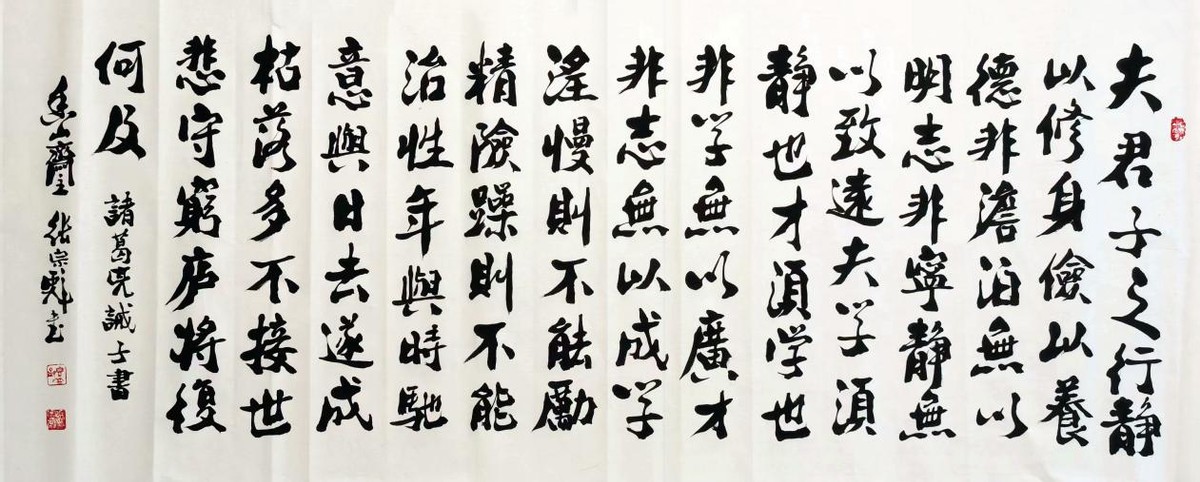 夫君子之行静
以修身儉以養
德非澹泊無以
明志非寧静無
以致遠夫学須
静也才須学也
非学無以廣才
非志無以成学
淫慢則不能勵
精險躁則不能
治性年與時馳
意與日去遂成
枯落多不接世
悲守窮庐將復
何及
諸葛亮誡子書
山齋主张宗彪书